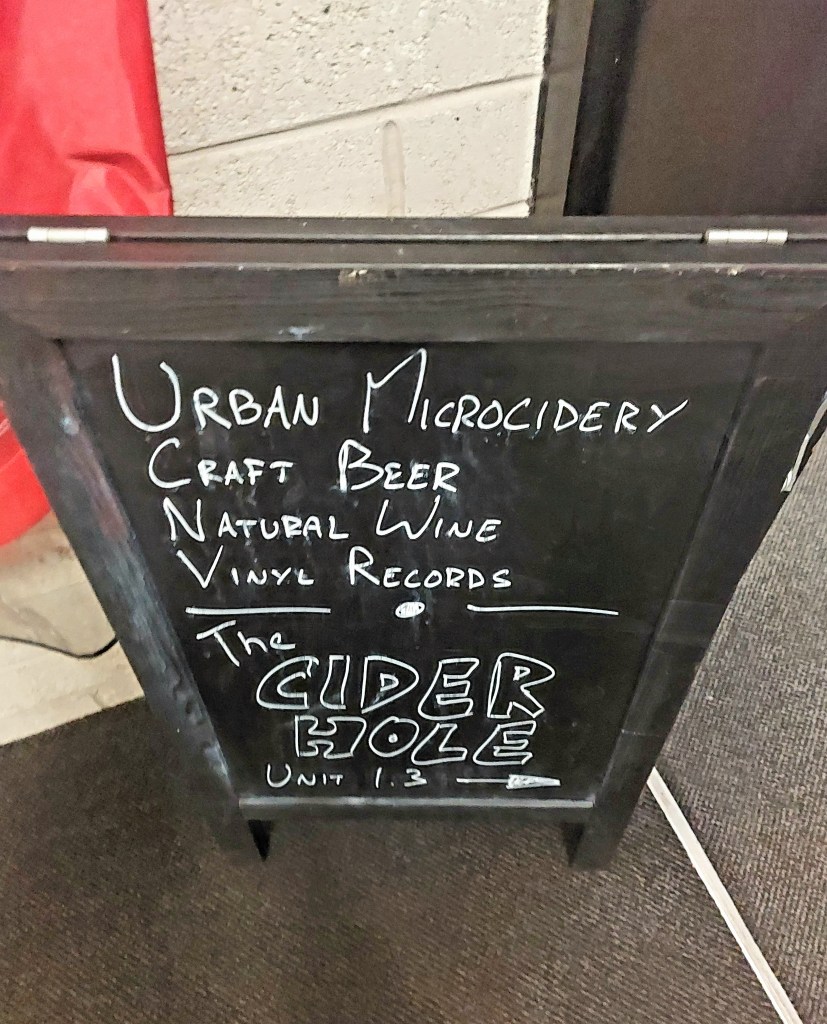 URBAN MICROCIDERY
CRAFT BEER
NATURAL WINE
VINYL RECORDS
The
CIDER
HOLE
UNIT 1.3 →